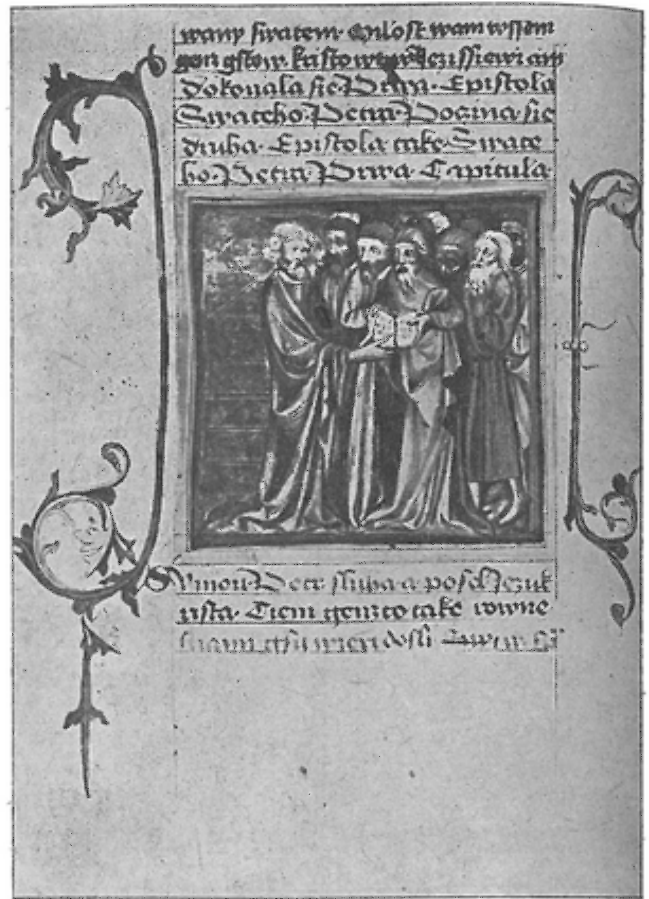 wany swatem Milost wam wssem
genz gste w kristowi Jezussiewi am
dokonala sie Prwa Epistola
Swateho Petra Pocina sie
druha Epistola take Swate
ho Petra Prwa Capitula
Symon Petr sluha a posel Jezuk
rista Tiem genzto take rowne
s nami gsu wieri dosli